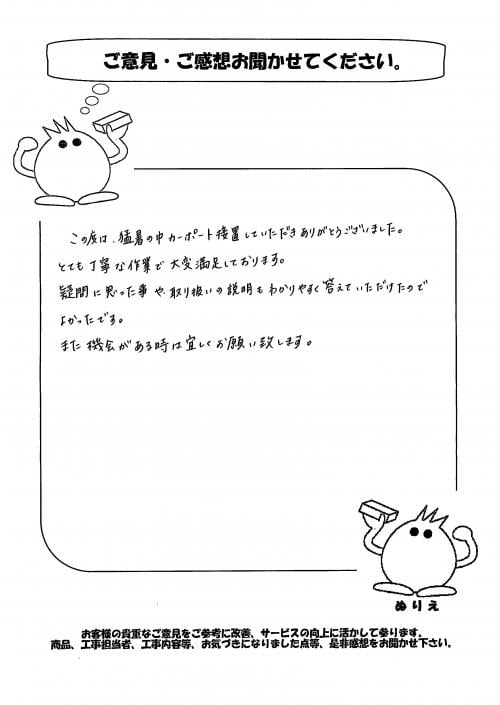 ご意見・ご感想お聞かせてください。
この度は、猛暑の中カーポート接置していただきありがとうございました。
とても丁寧な作業で大変満足しております。
疑問に思った事や、取り扱いの説明もわかりやすく答えていただけたので
よかったです。
また機会がある時は宜しくお願い致します。
ぬりえ
お客様の貴重なご意見をご参考に改善、サービスの向上に活かして参ります。
商品、工事担当者、工事内容等、お気づきになりました点等、是非感想をお聞かせ下さい。